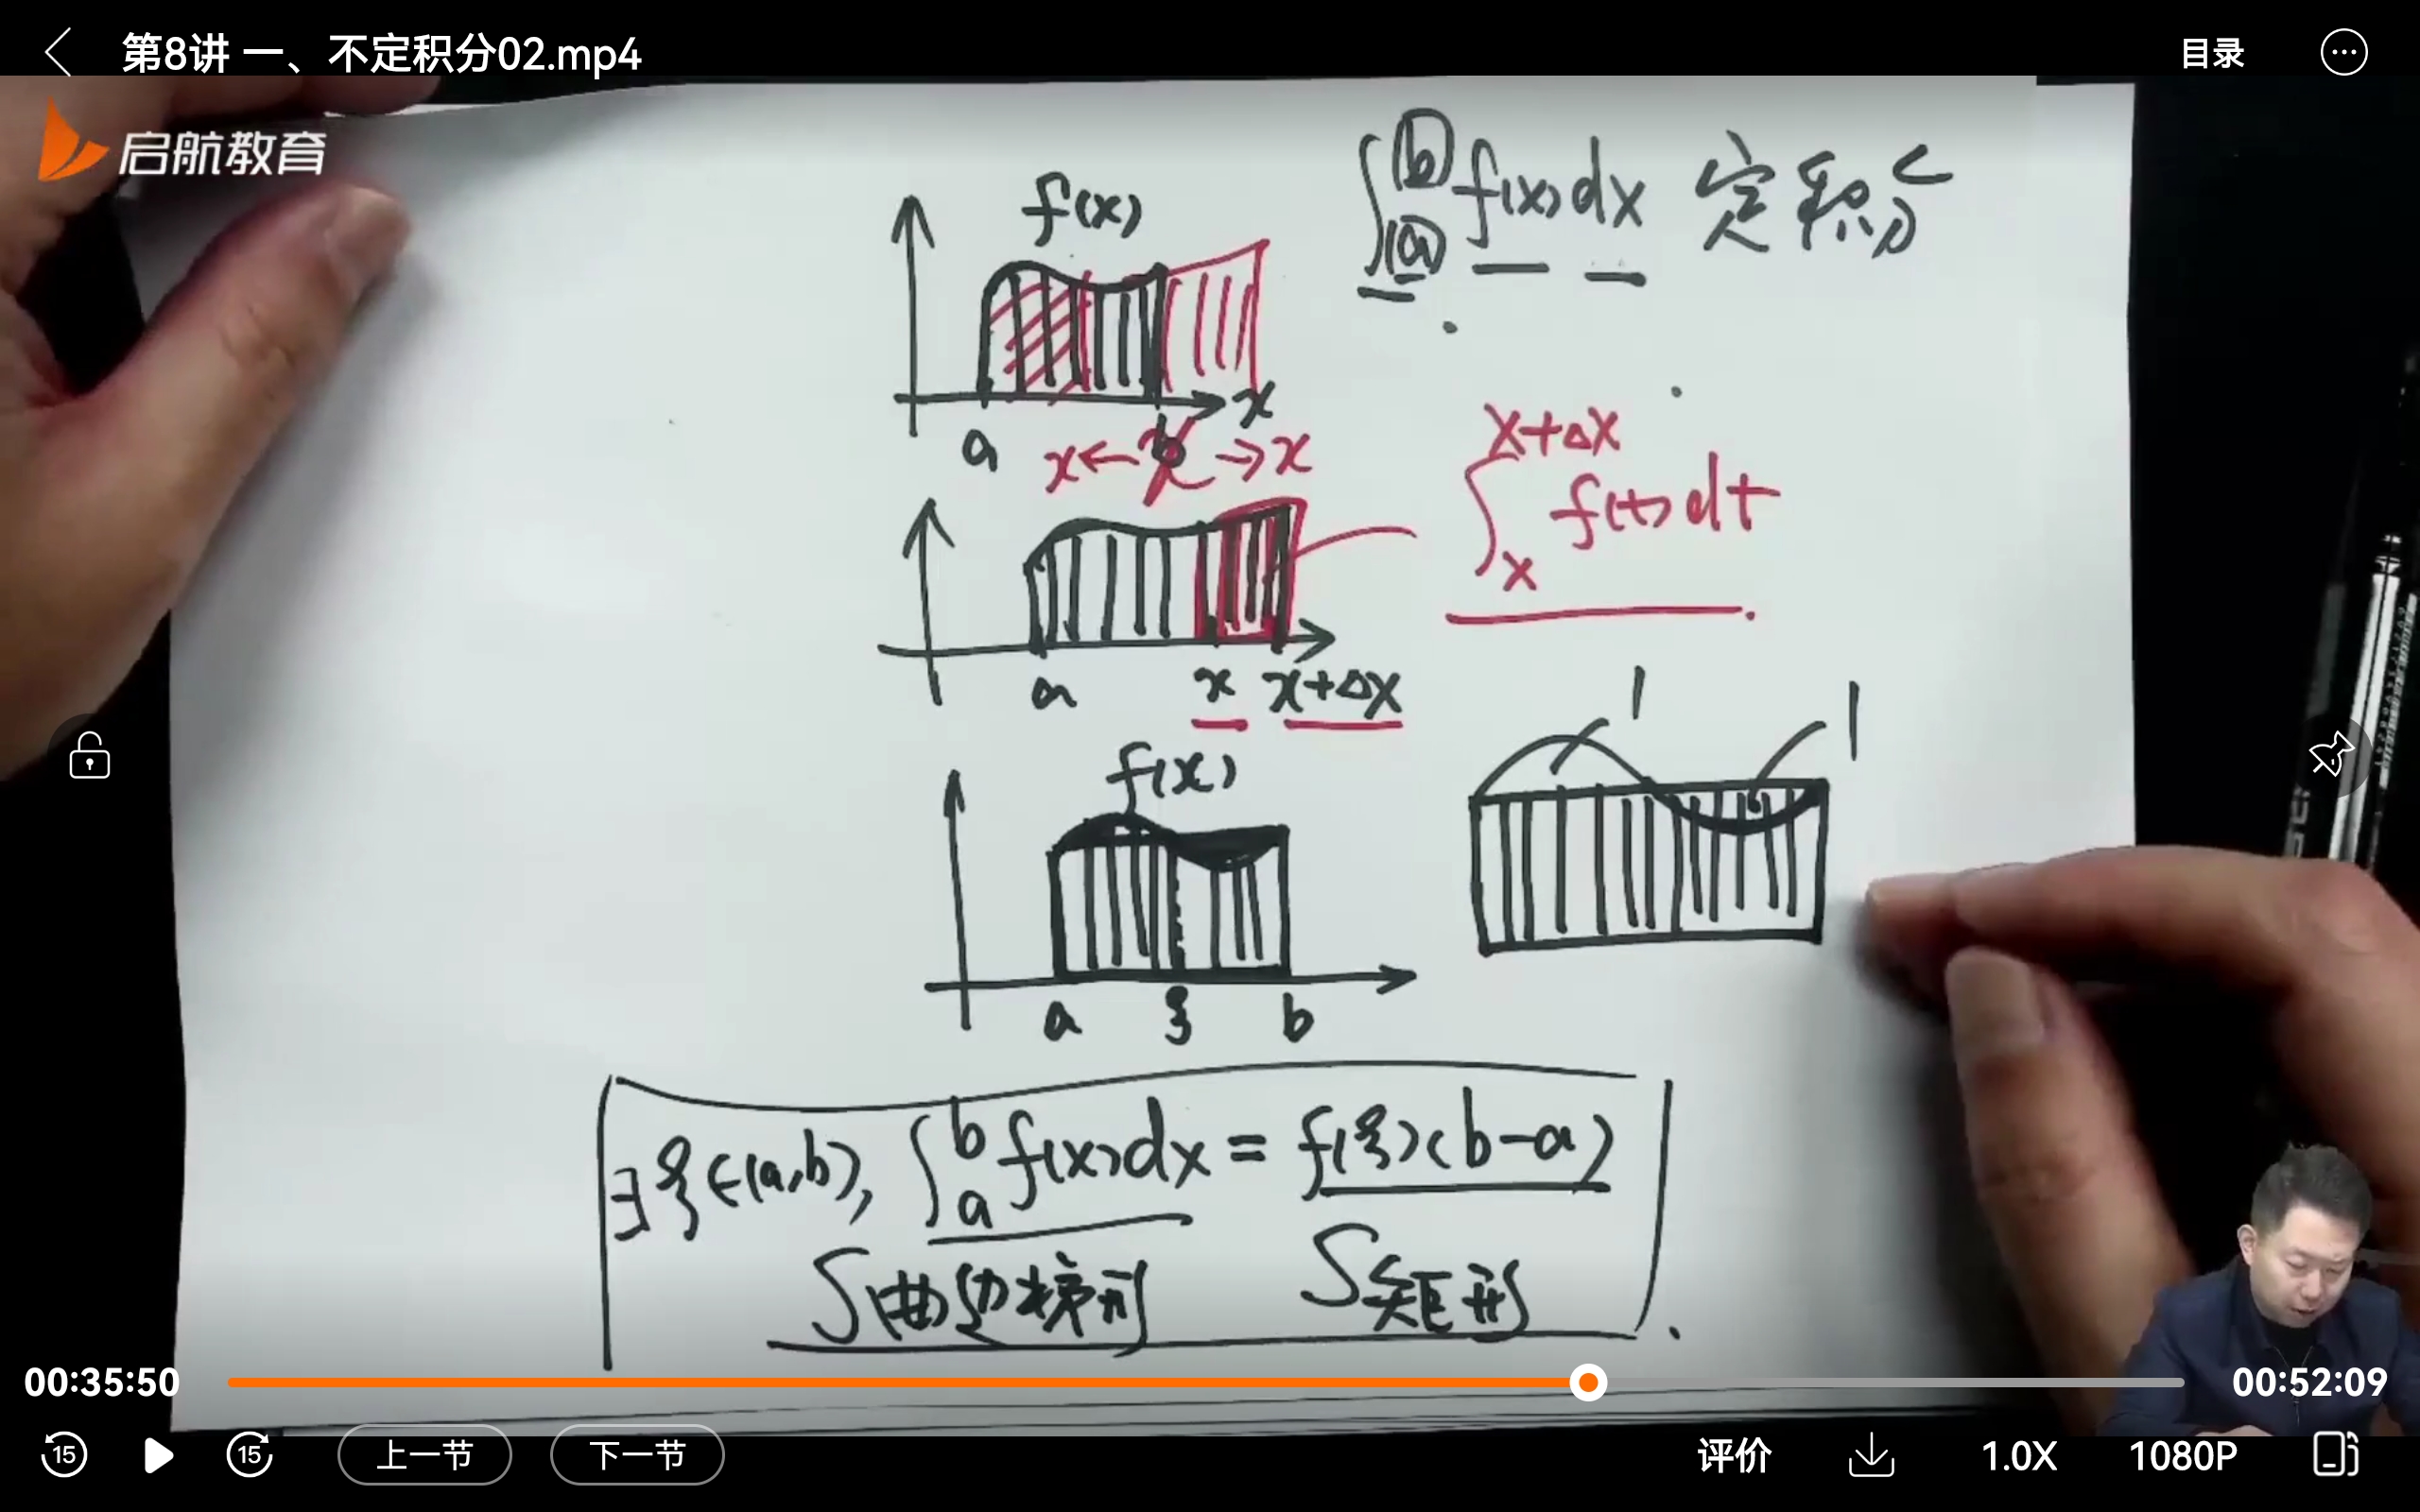 第8讲 一、不定积分02.mp4
目录
启航教育
f(x)
∫_a^b f(x)dx 定积分
x
a b
x← x →x
x+Δx
∫_x^{x+Δx} f(t)dt
a x x+Δx
f(x)
a ξ b
∃ξ∈(a,b), ∫_a^b f(x)dx = f(ξ)(b-a)
S曲边梯形 S矩形
00:35:50
00:52:09
15
15
上一节
下一节
评价
1.0X
1080P